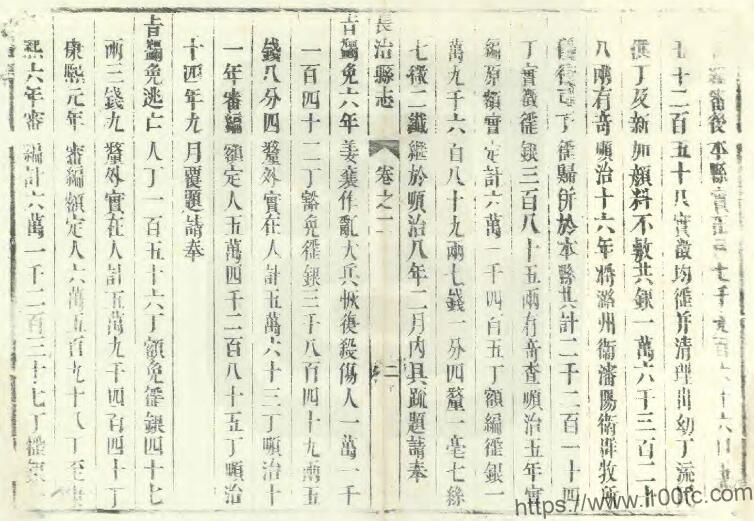 審後本縣實
七十二百五十八實徵均徭并清理出幼丁流
供丁及新加顏料不敷共銀一萬六千三百二十
八兩有奇順治十六年將潞州衛瀋陽衛群牧所
丁徭賦併於本縣共計二千二百一十四
丁實徵徭銀三百八十五兩有奇查順治五年實
編原額會定計六萬一千四百五丁額編徭銀一
萬九千六百八十九兩七錢一分四釐一毫七絲
七微二纖繼於順治八年二月內具疏題請奉
長治縣志 卷之二 二
旨蠲免六年姜襄作亂大兵恢復殺傷人一萬一千
一百四十二丁豁免徭銀三千八百四十九兩五
錢八分四釐外實在人計五萬六十三丁順治十
一年審編額定人五萬四千二百八十五丁順治
十四年九月覆題請奉
旨蠲免逃亡人丁一百五十六丁額免徭銀四十七
兩三錢九釐外實在人計五萬九千四百四十丁
康熙元年審編額定人六萬五百九十八丁至康
熙六年審編計六萬一千二百三十七丁徭銀
https://www.1r00fc.com